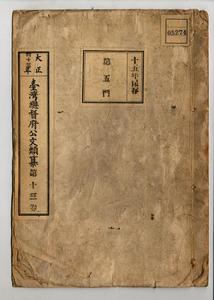 大正
臺灣總督府公文類纂第十三卷
十五年保存
第五門
05274